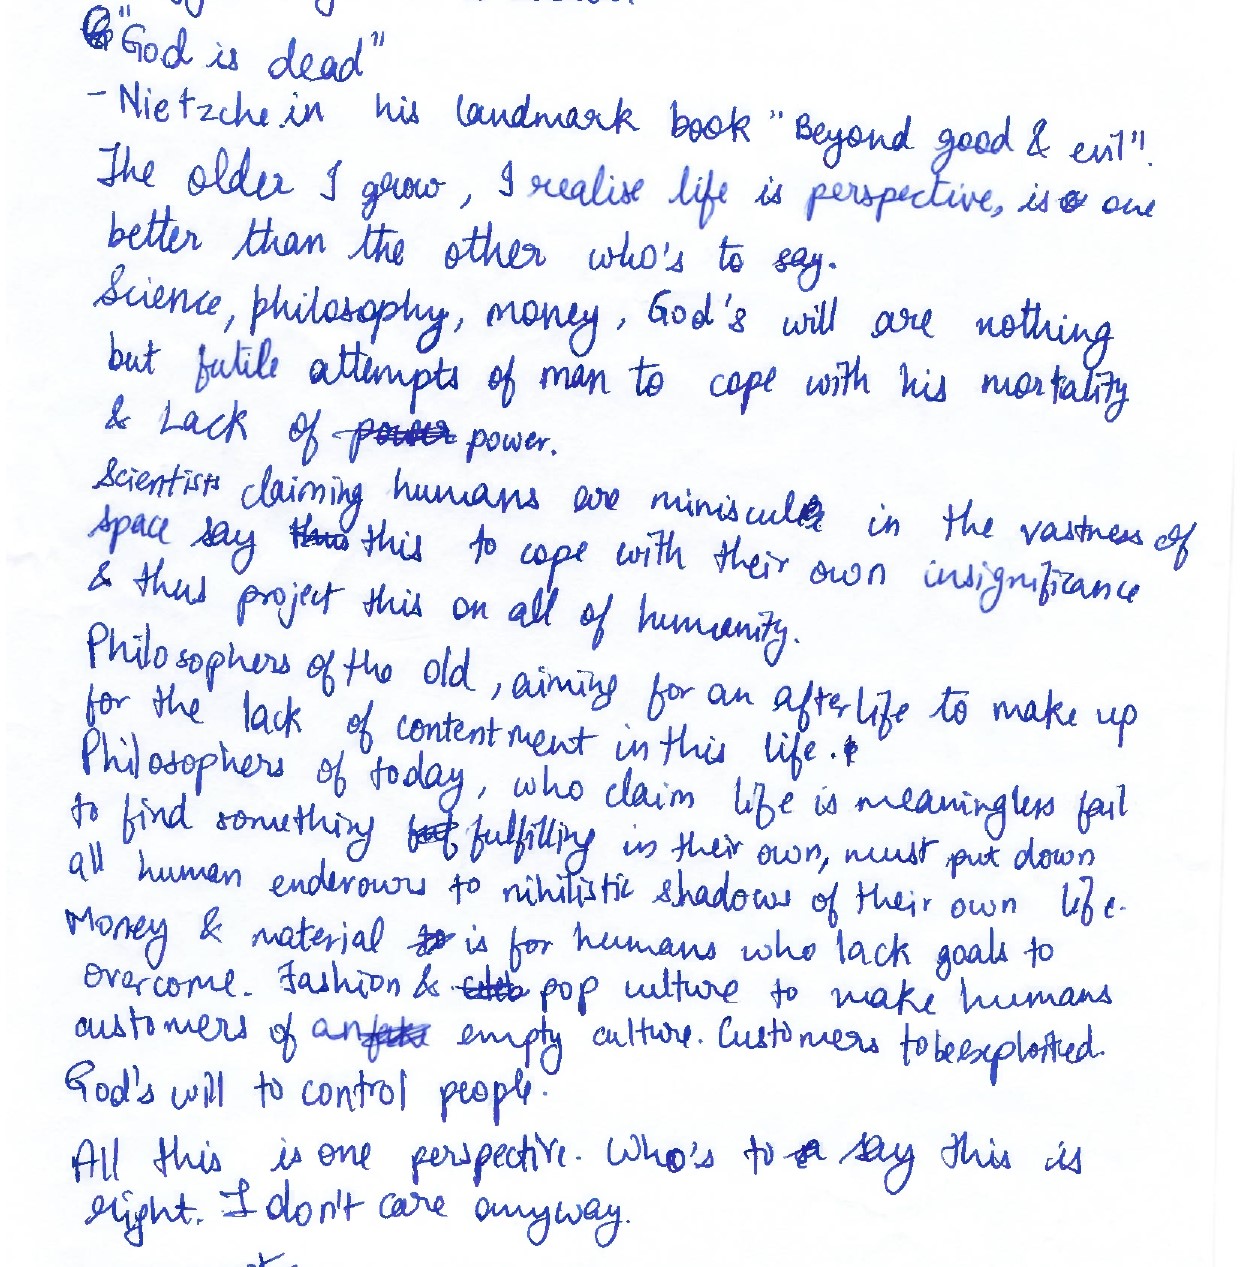 "God is dead"
- Nietzche in his landmark book "Beyond good & evil".
The older I grow, I realise life is perspective, is one
better than the other who's to say.
Science, philosophy, money, God's will are nothing
but futile attempts of man to cope with his mortality
& Lack of power power.
Scientists claiming humans are miniscule in the vastness of
space say this to cope with their own insignificance
& thus project this on all of humanity.
Philosophers of the old, aiming for an afterlife to make up
for the lack of contentment in this life.
Philosophers of today, who claim life is meaningless fail
to find something fulfilling in their own, must put down
all human enderours to nihilistic shadows of their own life.
Money & material is for humans who lack goals to
overcome. Fashion & pop culture to make humans
customers of empty culture. Customers to be exploited.
God's will to control people.
All this is one perspective. Who's to say this is
right. I don't care anyway.